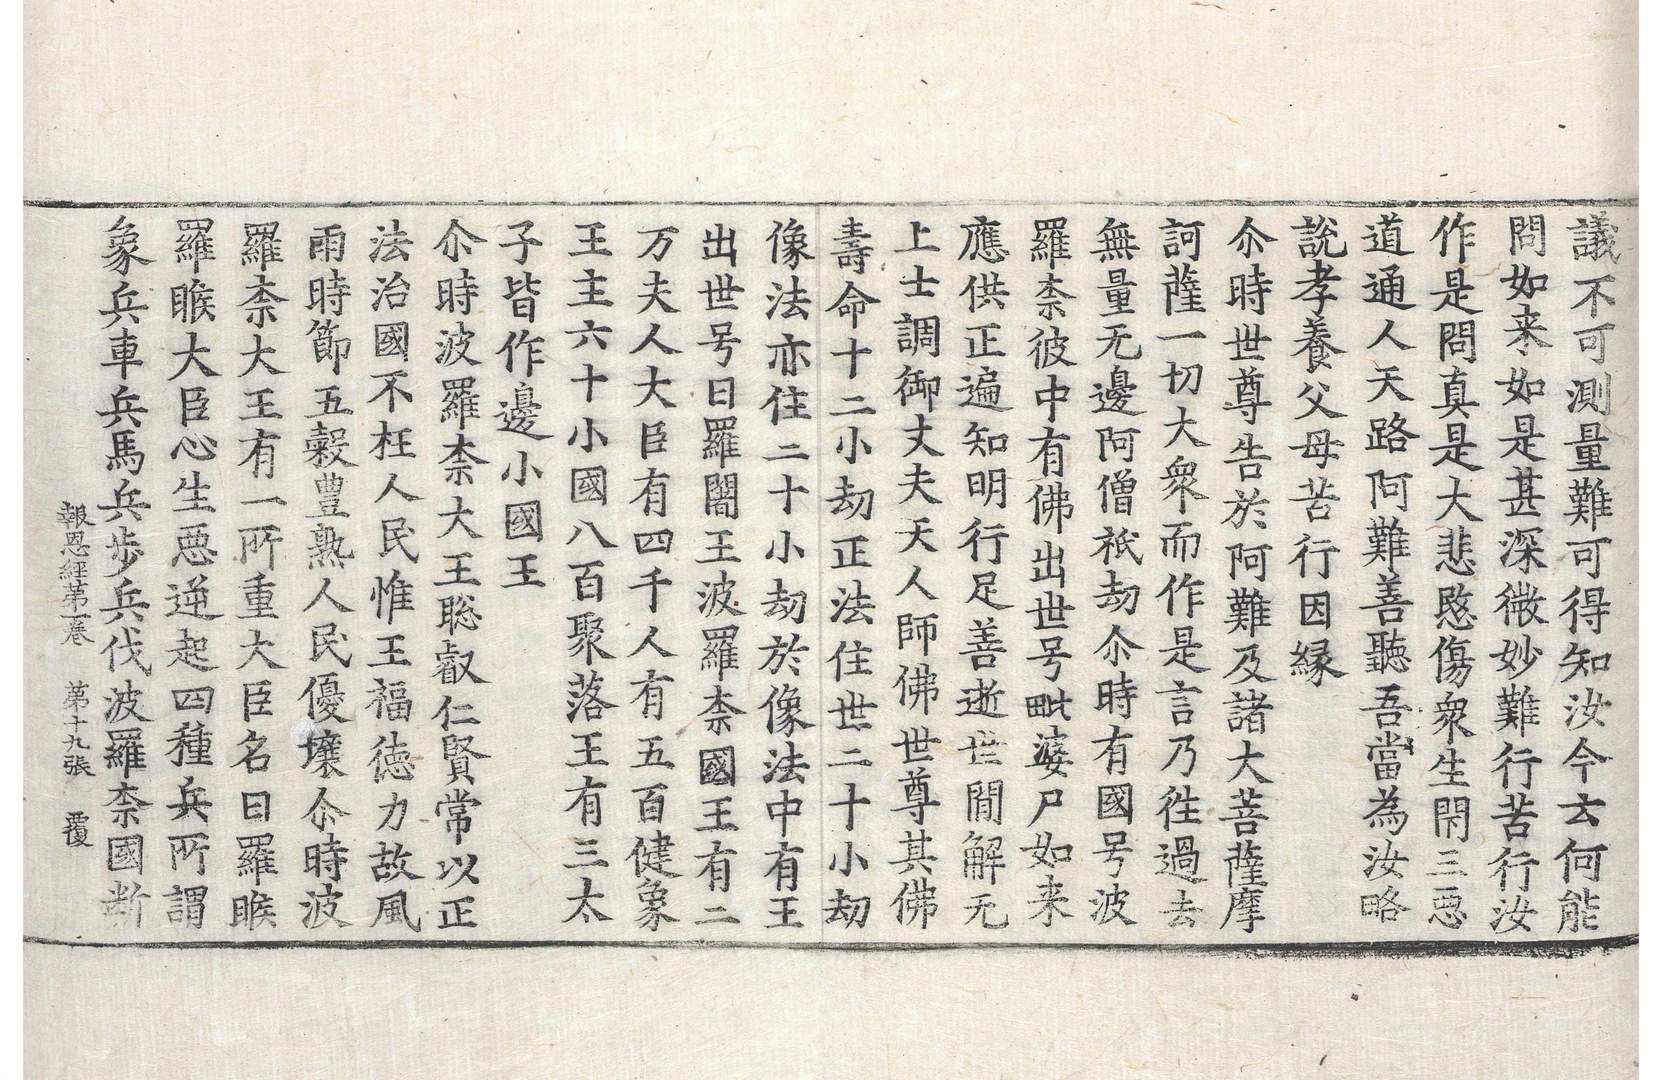 議不可測量難可得知汝今云何能
問如来如是甚深微妙難行苦行汝
作是問真是大悲愍傷衆生閇三惡
道通人天路阿難善聽吾當為汝略
說孝養父母苦行因縁
尒時世尊告於阿難及諸大菩薩摩
訶薩一切大衆而作是言乃徃過去
無量无邊阿僧祇劫尒時有國号波
羅柰彼中有佛出世号毗婆尸如来
應供正遍知明行足善逝世間解无
上士調御丈夫天人師佛世尊其佛
壽命十二小劫正法住世二十小劫
像法亦住二十小劫於像法中有王
出世号曰羅闍王波羅柰國王有二
万夫人大臣有四千人有五百健象
王主六十小國八百聚落王有三太
子皆作邊小國王
尒時波羅柰大王聡叡仁賢常以正
法治國不枉人民惟王福德力故風
雨時節五穀豊熟人民優壤尒時波
羅柰大王有一所重大臣名曰羅睺
羅睺大臣心生惡逆起四種兵所謂
象兵車兵馬兵步兵伐波羅柰國斷
報恩經第一卷　第十九張　覆